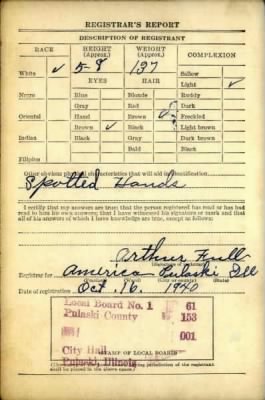 REGISTRAR'S REPORT
DESCRIPTION OF REGISTRANT
RACE HEIGHT (Approx.) WEIGHT (Approx.) COMPLEXION
White ✓ 5-8 137 Sallow
EYES HAIR Light ✓
Negro Blue Blonde Ruddy
Gray Red ✓ Dark
Oriental Hazel Brown ✓ Freckled
Brown ✓ Black Light brown
Indian Black Gray Dark brown
Bald Black
Filipino
Other obvious physical characteristics that will aid in identification
Spotted Hands
I certify that my answers are true; that the person registered has read or has had read to him his own answers; that I have witnessed his signature or mark and that all of his answers of which I have knowledge are true, except as follows:
Arthur
(Signature of registrar)
Registrar for America Pulaski Ill
(Precinct) (City or county) (State)
Date of registration Oct. 16, 1940
Local Board No. 1 61
Pulaski County 153
001
City Hall
Pulaski, Illinois
STAMP OF LOCAL BOARD
(The stamp of the Local Board having jurisdiction of the registrant shall be placed in the above space.)